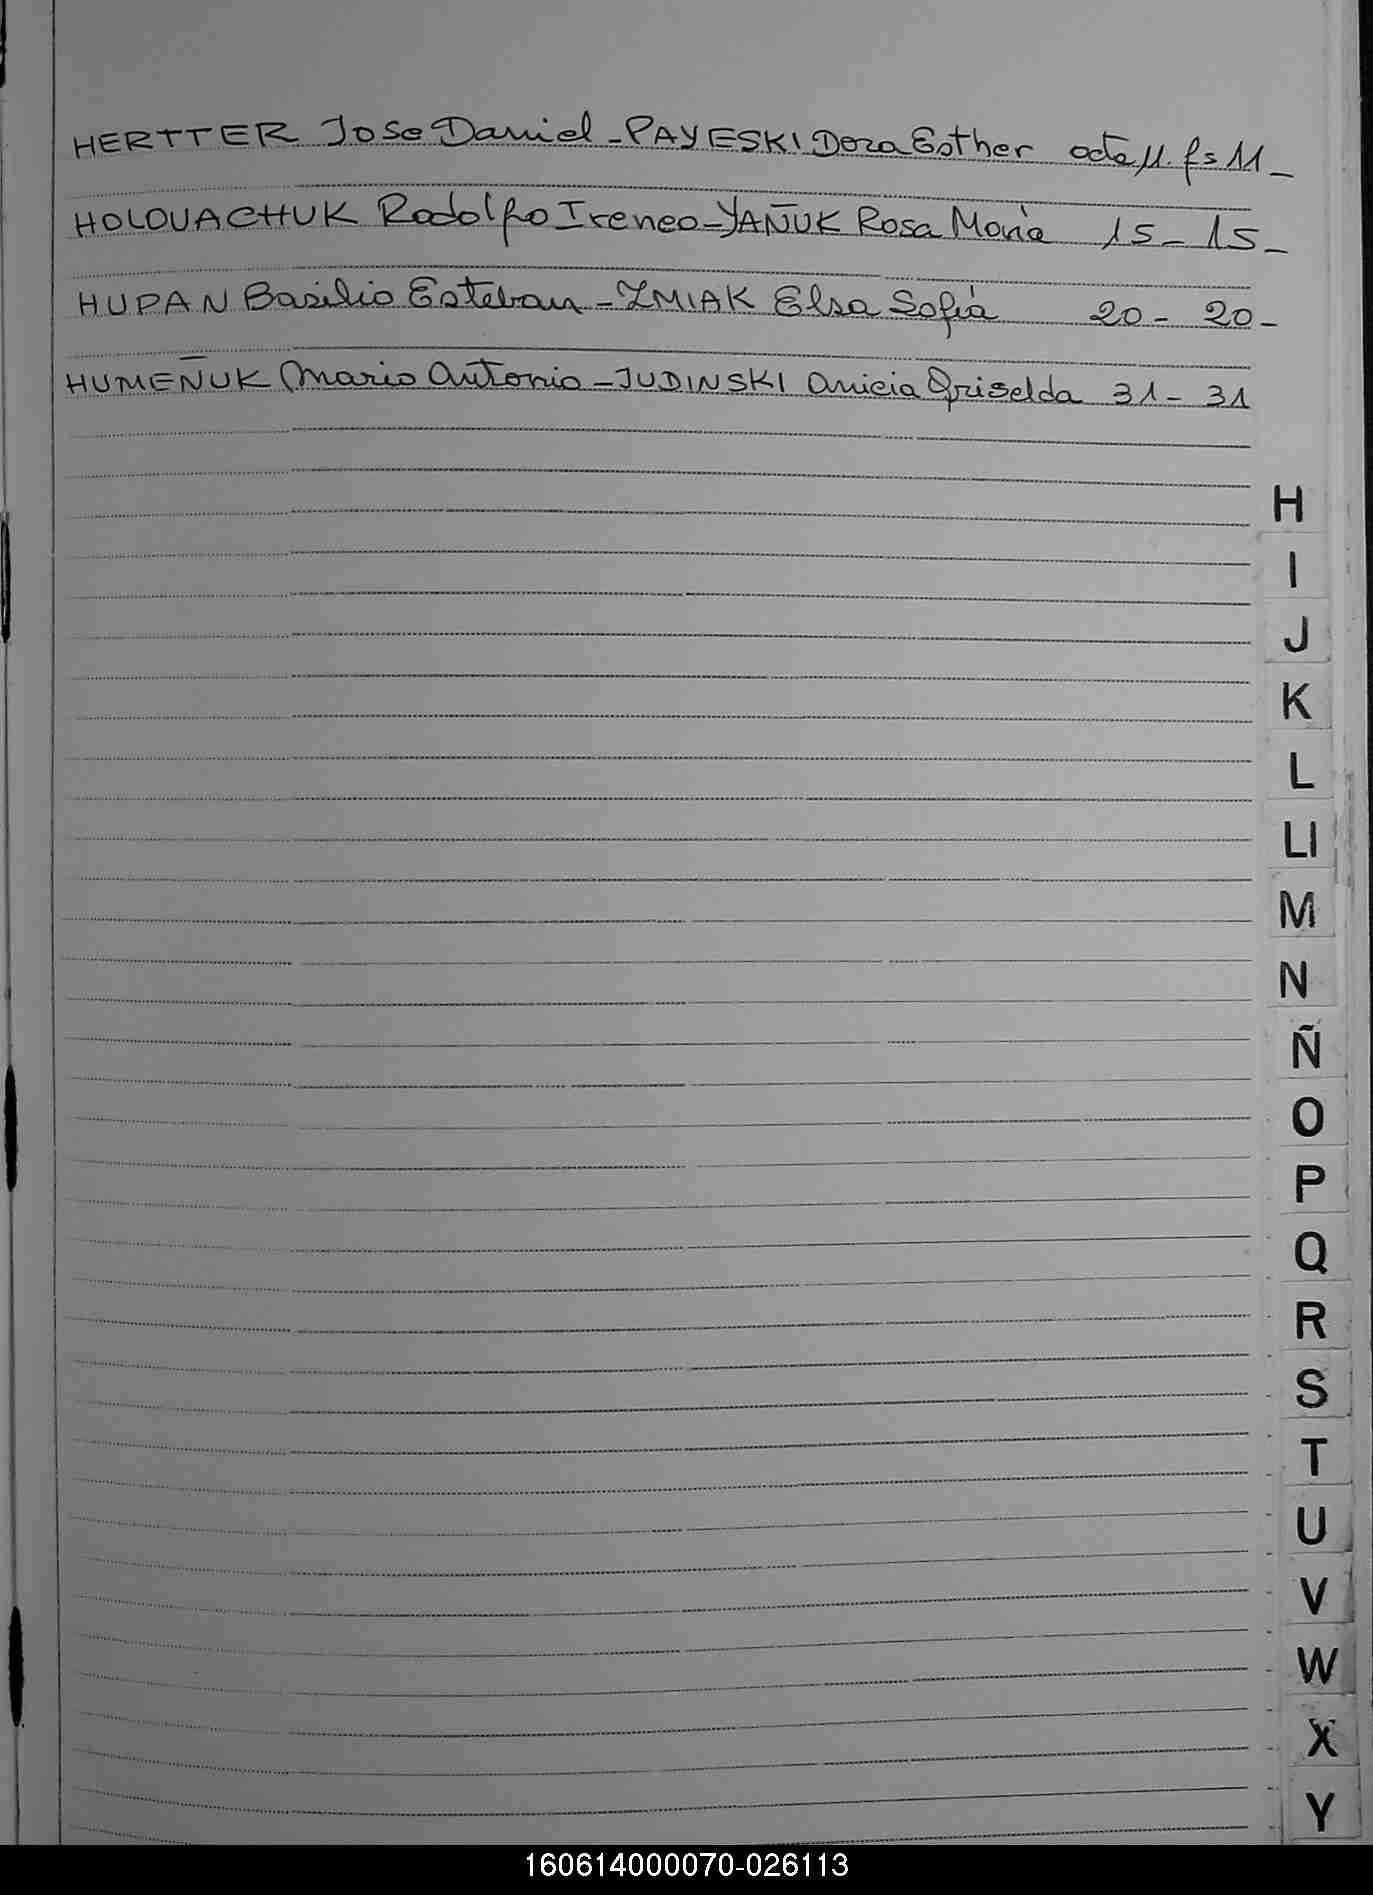 HERTTER Jose Daniel - PAYESKI Dora Esther acta 11. fs 11 -
HOLOVACHUK Rodolfo Ireneo - YAÑUK Rosa Maria 15 - 15 -
HUPAN Basilio Esteban - ZMIAK Elsa Sofia 20 - 20 -
HUMEÑUK Mario Antonio - JUDINSKI Anicia Griselda 31 - 31
H
I
J
K
L
Ll
M
N
Ñ
O
P
Q
R
S
T
U
V
W
X
Y
160614000070-026113